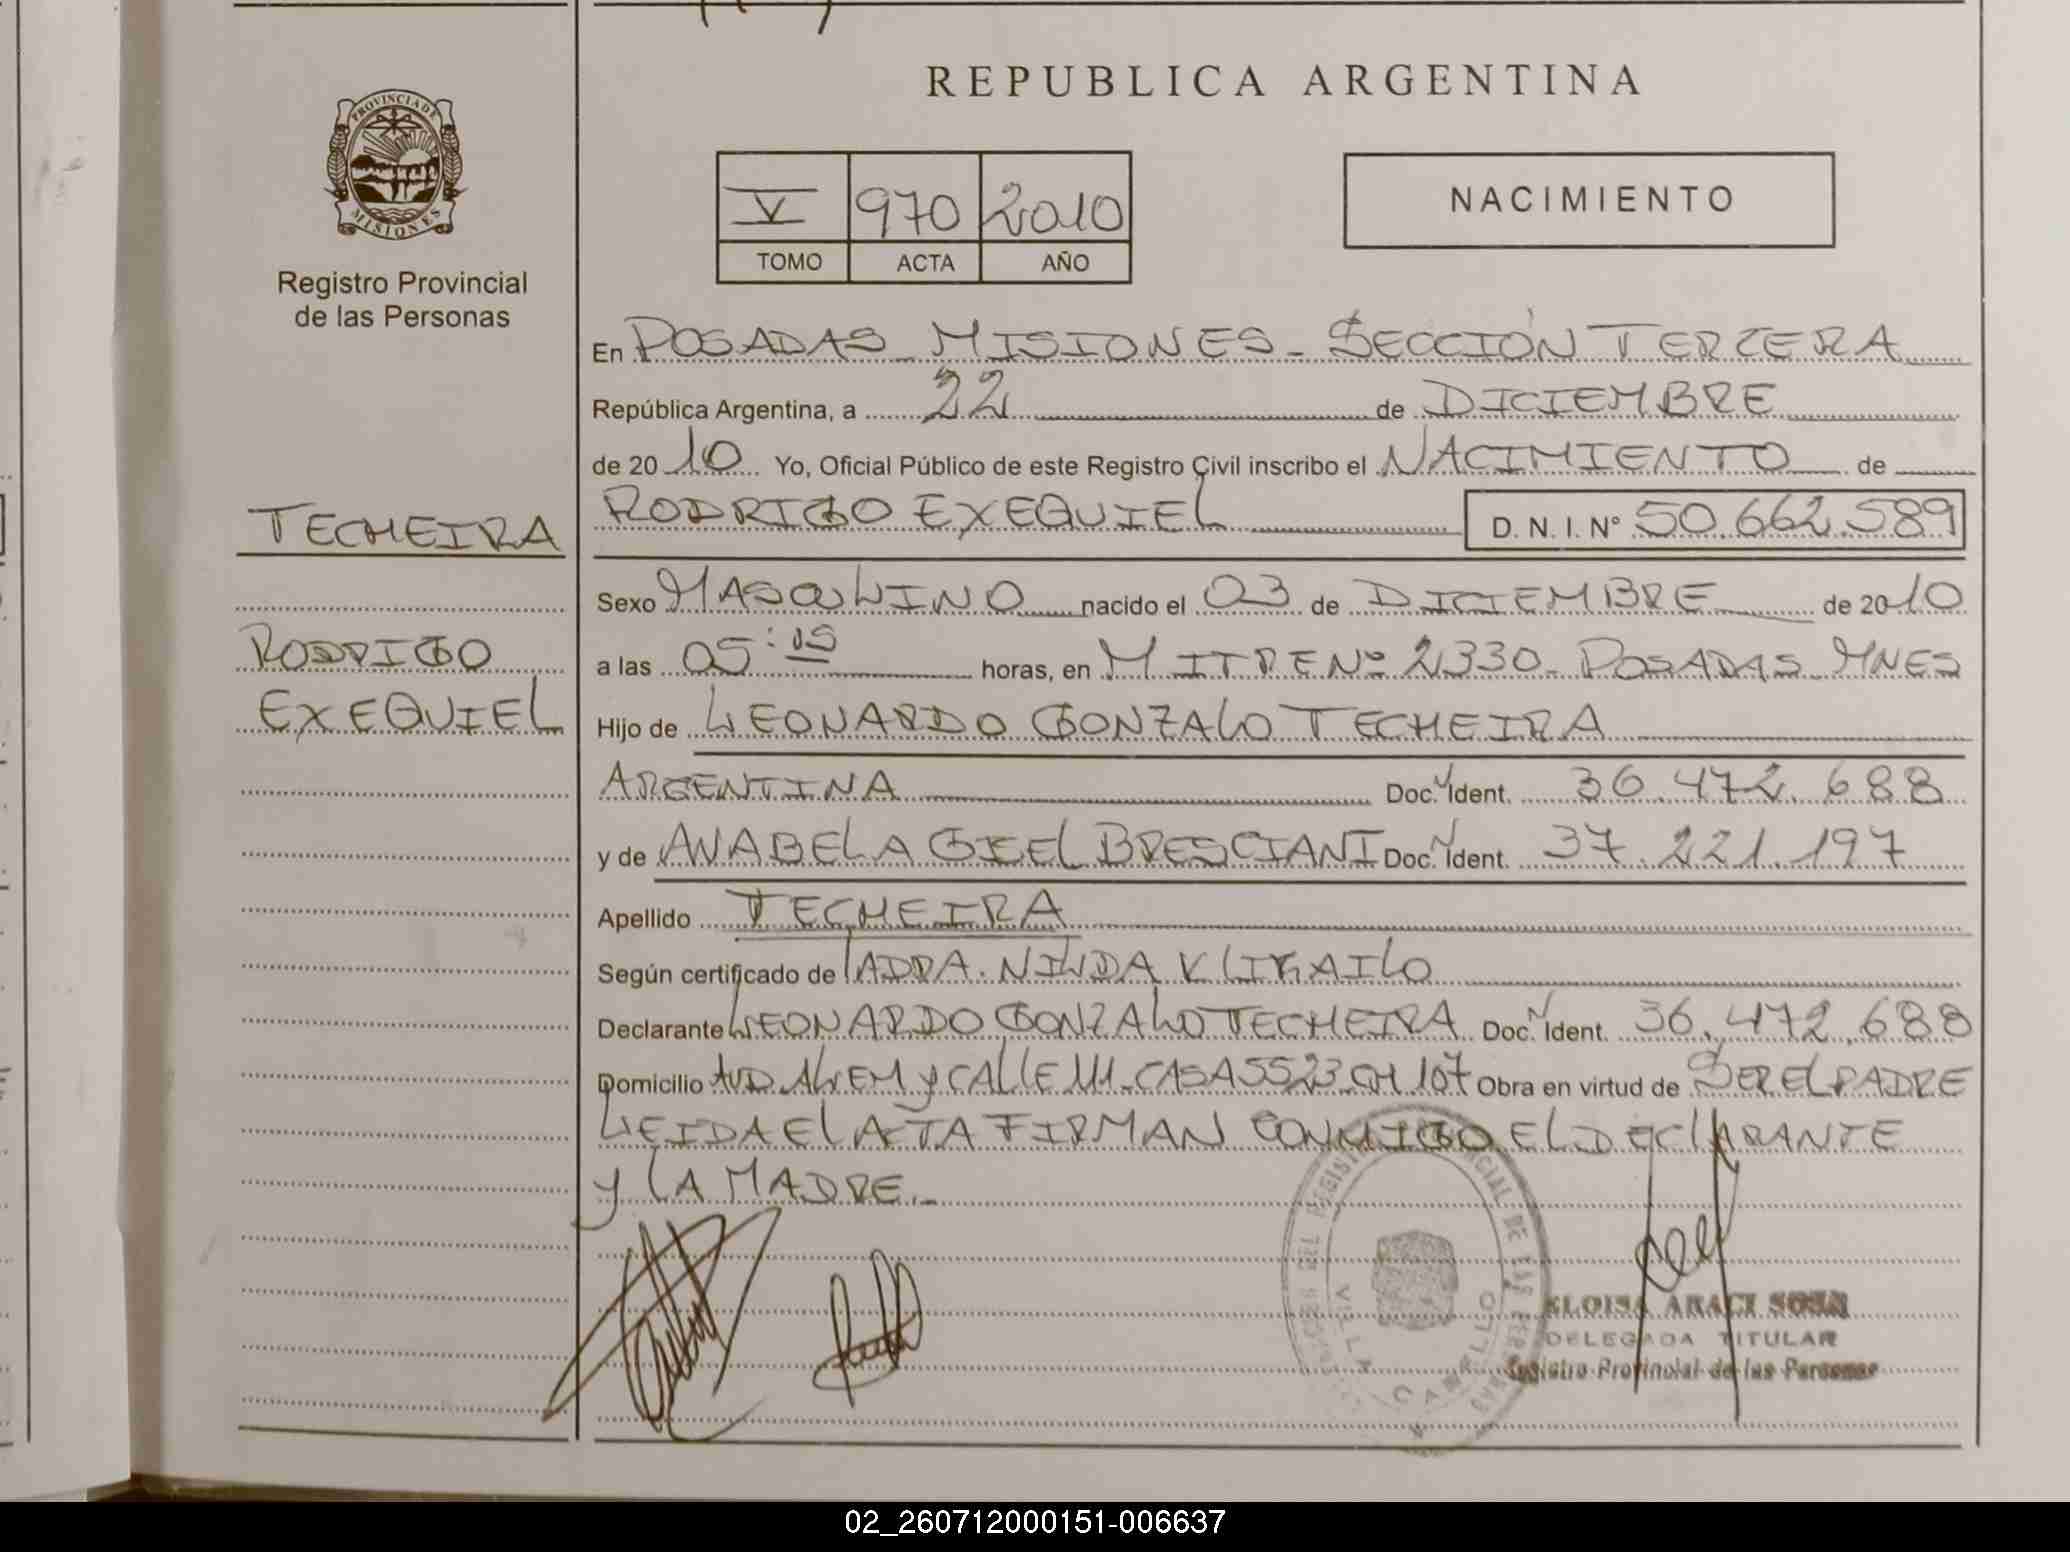 REPUBLICA ARGENTINA
PROVINCIA DE MISIONES
Registro Provincial
de las Personas
V 970 2010
TOMO ACTA AÑO
NACIMIENTO
En POSADAS MISIONES - SECCIÓN TERCERA
República Argentina, a 22 de DICIEMBRE
de 2010 Yo, Oficial Público de este Registro Civil inscribo el NACIMIENTO de
RODRIGO EXEQUIEL D. N. I. Nº 50.662.589
TECHEIRA
RODRIGO
EXEQUIEL
Sexo MASCULINO nacido el 03 de DICIEMBRE de 2010
a las 05:05 horas, en MITRE Nº 2330 - POSADAS MNES
Hijo de LEONARDO GONZALO TECHEIRA
ARGENTINA Doc. Ident. 36.472.688
y de ANABELA GISEL BRESCIANI Doc. Ident. 37.221.197
Apellido TECHEIRA
Según certificado de LA DRA. NILDA KLIKAILO
Declarante LEONARDO GONZALO TECHEIRA Doc. Ident. 36.472.688
Domicilio AVD. ALEM y CALLE 111 - CASA 5523 CH 107 Obra en virtud de SER EL PADRE
LEIDA EL ACTA FIRMAN CONMIGO EL DECLARANTE
y LA MADRE.-
ELOISA ARACI SOSA
DELEGADA TITULAR
Registro Provincial de las Personas
02_260712000151-006637